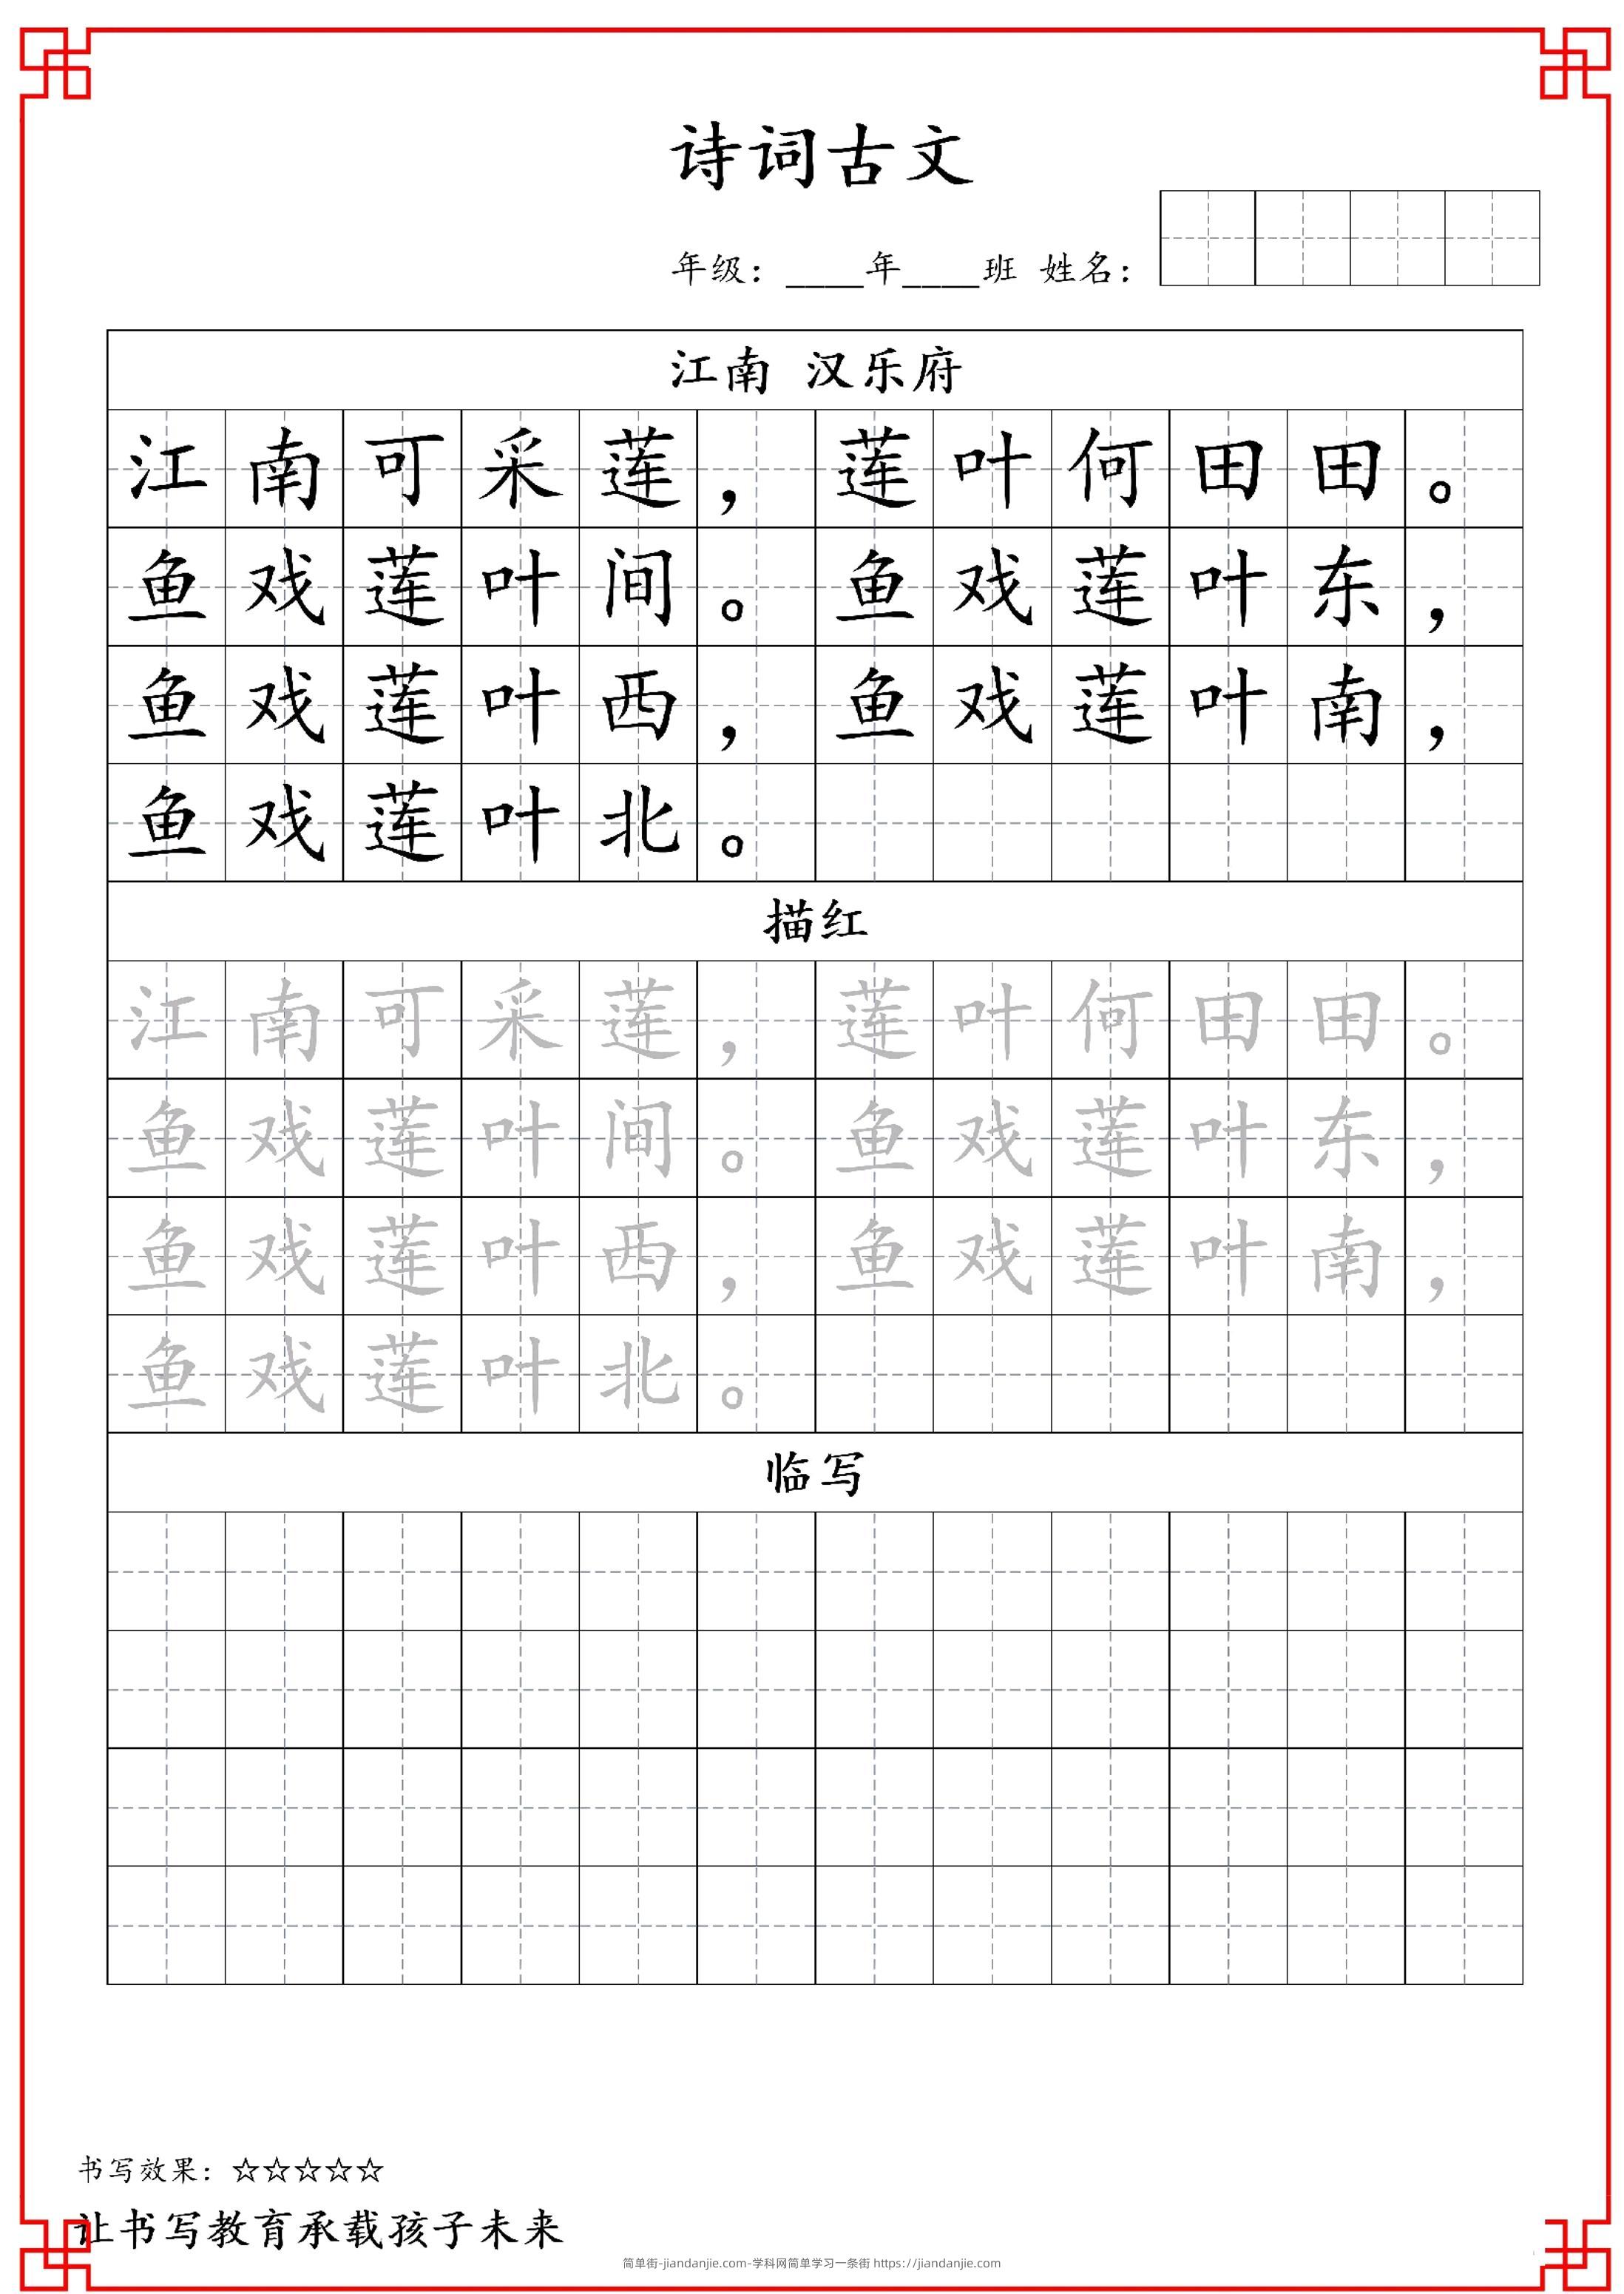 诗词古文
年级：____年____班 姓名：
江南 汉乐府
江南可采莲，莲叶何田田。
鱼戏莲叶间。鱼戏莲叶东，
鱼戏莲叶西，鱼戏莲叶南，
鱼戏莲叶北。
描红
江南可采莲，莲叶何田田。
鱼戏莲叶间。鱼戏莲叶东，
鱼戏莲叶西，鱼戏莲叶南，
鱼戏莲叶北。
临写
书写效果：☆☆☆☆☆
让书写教育承载孩子未来
简单街-jiandanjie.com-学科网简单学习一条街 https://jiandanjie.com